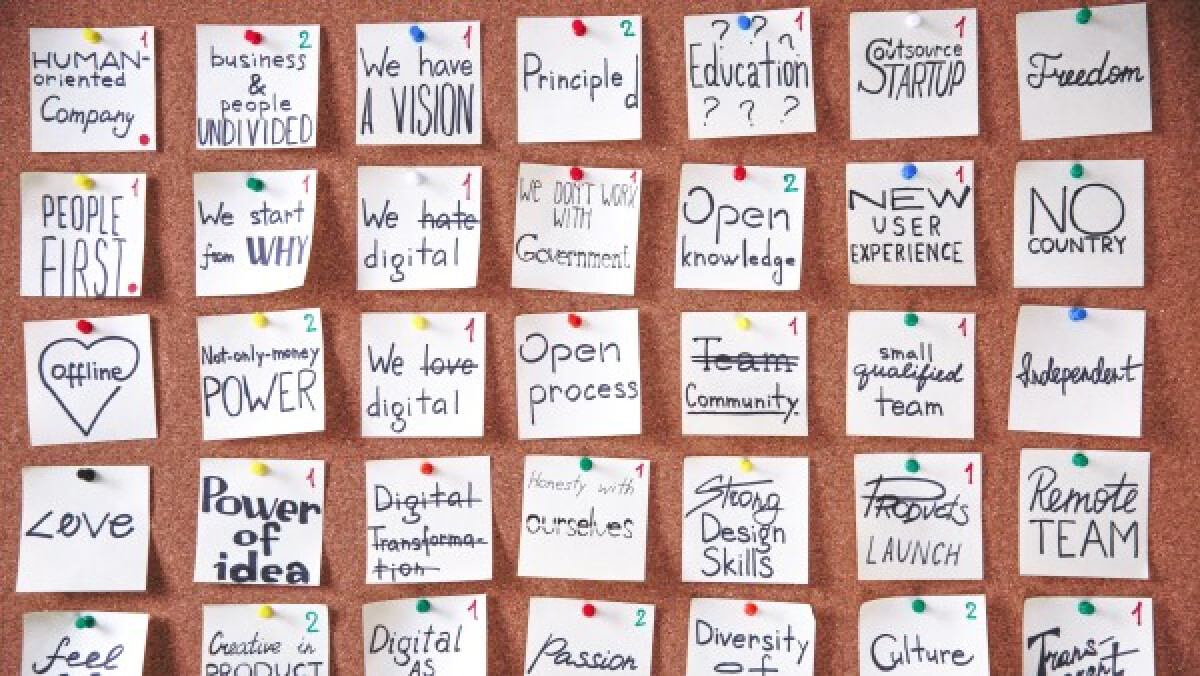 1
HUMAN-
oriented
Company
2
business
&
people
UNDIVIDED
1
We have
A VISION
2
Principled
1
? ? ?
Education
? ? ?
1
Outsource
STARTUP
Freedom
1
PEOPLE
FIRST.
1
We start
from WHY
1
We hate
digital
1
We DON'T WORK
WITH
Government.
2
Open
knowledge
1
NEW
USER
EXPERIENCE
NO
COUNTRY
offline
2
Not-only-money
POWER
1
We love
digital
Open
process
1
Team
Community
1
small
qualified
team
Independent
Love
1
Power
of
idea
Digital
Transforma-
tion
1
Honesty with
ourselves
Strong
Design
Skills
1
Products
LAUNCH
Remote
TEAM
feel
2
Creative in
PRODUCT
1
Digital
AS
2
Passion
Diversity
of
2
Culture
1
Trans-